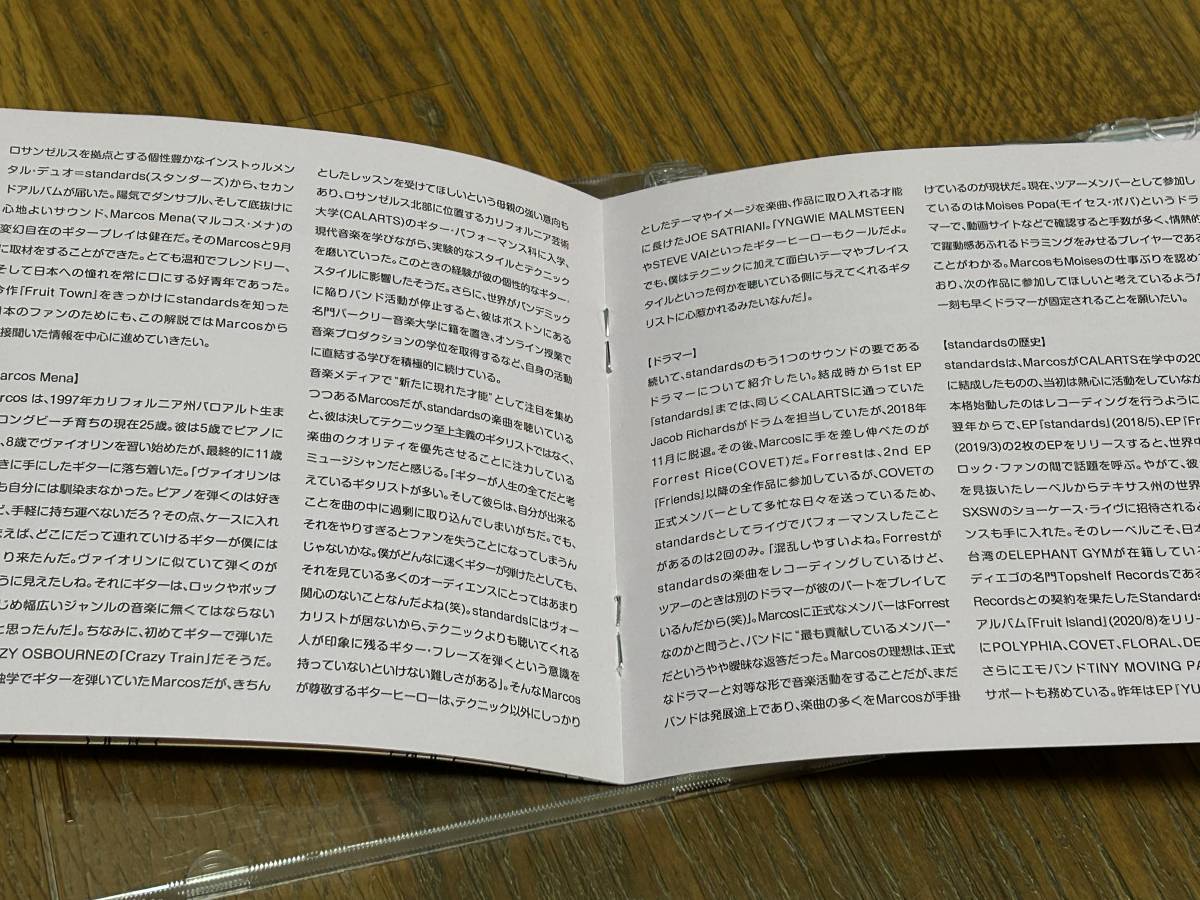 ロサンゼルスを拠点とする個性豊かなインストゥルメン
タル・デュオ=standards(スタンダーズ)から、セカン
ドアルバムが届いた。陽気でダンサブル、そして底抜けに
心地よいサウンド、Marcos Mena(マルコス・メナ)の
変幻自在のギタープレイは健在だ。そのMarcosと9月
に取材をすることができた。とても温和でフレンドリー、
そして日本への憧れを常に口にする好青年であった。
今作『Fruit Town』をきっかけにstandardsを知った
日本のファンのためにも、この解説ではMarcosから
接聞いた情報を中心に進めていきたい。
arcos Mena】
arcos は、1997年カリフォルニア州パロアルト生ま
ロングビーチ育ちの現在25歳。彼は5歳でピアノに
、8歳でヴァイオリンを習い始めたが、最終的に11歳
きに手にしたギターに落ち着いた。「ヴァイオリンは
も自分には馴染まなかった。ピアノを弾くのは好き
ど、手軽に持ち運べないだろ？その点、ケースに入れ
まえば、どこにだって連れていけるギターが僕には
り来たんだ。ヴァイオリンに似ていて弾くのが
うに見えたしね。それにギターは、ロックやポップ
じめ幅広いジャンルの音楽に無くてはならない
と思ったんだ」。ちなみに、初めてギターで弾いた
ZY OSBOURNEの「Crazy Train」だそうだ。
独学でギターを弾いていたMarcosだが、きちん
としたレッスンを受けてほしいという母親の強い意向も
あり、ロサンゼルス北部に位置するカリフォルニア芸術
大学(CALARTS)のギター・パフォーマンス科に入学、
現代音楽を学びながら、実験的なスタイルとテクニック
を磨いていった。このときの経験が彼の個性的なギター・
スタイルに影響したそうだ。さらに、世界がパンデミック
に陥りバンド活動が停止すると、彼はボストンにある
名門バークリー音楽大学に籍を置き、オンライン授業で
音楽プロダクションの学位を取得するなど、自身の活動
に直結する学びを積極的に続けている。
音楽メディアで“新たに現れた才能”として注目を集め
つつあるMarcosだが、standardsの楽曲を聴いている
と、彼は決してテクニック至上主義のギタリストではなく、
楽曲のクオリティを優先させることに注力している
ミュージシャンだと感じる。「ギターが人生の全てだと考
えているギタリストが多い。そして彼らは、自分が出来る
ことを曲の中に過剰に取り込んでしまいがちだ。でも、
それをやりすぎるとファンを失うことになってしまうん
じゃないかな。僕がどんなに速くギターが弾けたとしても、
それを見ている多くのオーディエンスにとってはあまり
関心のないことなんだよね(笑)。standardsにはヴォー
カリストが居ないから、テクニックよりも聴いてくれる
人が印象に残るギター・フレーズを弾くという意識を
持っていないといけない難しさがある」。そんなMarcos
が尊敬するギターヒーローは、テクニック以外にしっかり
としたテーマやイメージを楽曲、作品に取り入れる才能
に長けたJOE SATRIANI。「YNGWIE MALMSTEEN
やSTEVE VAIといったギターヒーローもクールだよ。
でも、僕はテクニックに加えて面白いテーマやプレイス
タイルといった何かを聴いている側に与えてくれるギタ
リストに心惹かれるみたいなんだ」。
【ドラマー】
続いて、standardsのもう1つのサウンドの要である
ドラマーについて紹介したい。結成時から1st EP
『standards』までは、同じくCALARTSに通っていた
Jacob Richardsがドラムを担当していたが、2018年
11月に脱退。その後、Marcosに手を差し伸べたのが
Forrest Rice(COVET)だ。Forrestは、2nd EP
『Friends』以降の全作品に参加しているが、COVETの
正式メンバーとして多忙な日々を送っているため、
standardsとしてライヴでパフォーマンスしたこと
があるのは2回のみ。「混乱しやすいよね。Forrestが
standardsの楽曲をレコーディングしているけど、
ツアーのときは別のドラマーが彼のパートをプレイして
いるんだから(笑)」。Marcosに正式なメンバーはForrest
なのかと問うと、バンドに“最も貢献しているメンバー”
だというやや曖昧な返答だった。Marcosの理想は、正式
なドラマーと対等な形で音楽活動をすることだが、まだ
バンドは発展途上であり、楽曲の多くをMarcosが手掛
けているのが現状だ。現在、ツアーメンバーとして参加し
ているのはMoises Popa(モイセス・ポパ)というドラ
マーで、動画サイトなどで確認すると手数が多く、情熱的
で躍動感あふれるドラミングをみせるプレイヤーである
ことがわかる。MarcosもMoisesの仕事ぶりを認めて
おり、次の作品に参加してほしいと考えているようだ
一刻も早くドラマーが固定されることを願いたい。
【standardsの歴史】
standardsは、MarcosがCALARTS在学中の20
に結成したものの、当初は熱心に活動をしていなか
本格始動したのはレコーディングを行うように
翌年からで、EP『standards』(2018/5)、EP『Frien
(2019/3)の2枚のEPをリリースすると、世界中
ロック・ファンの間で話題を呼ぶ。やがて、彼
を見抜いたレーベルからテキサス州の世界
SXSWのショーケース・ライヴに招待されると
ンスも手に入れた。そのレーベルこそ、日本
台湾のELEPHANT GYMが在籍してい
ディエゴの名門Topshelf Recordsである
Recordsとの契約を果たしたStandards
アルバム『Fruit Island』(2020/8)をリリー
にPOLYPHIA、COVET、FLORAL、DE
さらにエモバンドTINY MOVING PA
サポートも務めている。昨年はEP『YU